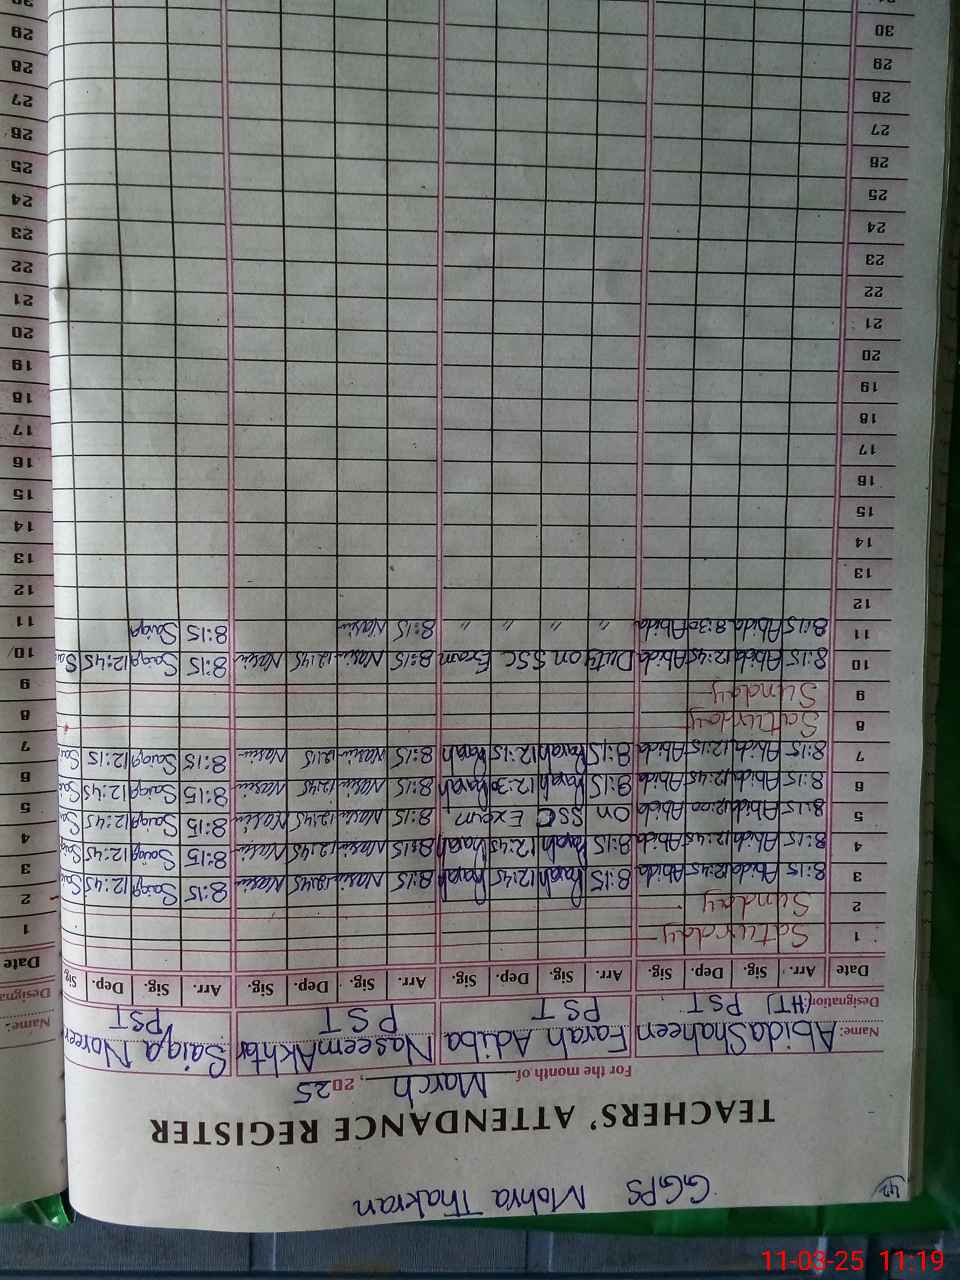 42
GGPS Mohra Thakran
TEACHERS' ATTENDANCE REGISTER
For the month of March, 2025
Name: Abida Shaheen Farah Adiba Naseem Akhtar Saiqa Noreen
Designation (HT) PST PST PST PST
Date Arr. Sig. Dep. Sig. Arr. Sig. Dep. Sig. Arr. Sig. Dep. Sig. Arr. Sig. Dep. Sig.
1 Saturday
2 Sunday
3 8:15 Abida 12:45 Abida 8:15 Farah 12:45 Farah 8:15 Nasim 12:45 Nasim 8:15 Saiqa 12:45 Sai
4 8:15 Abida 12:45 Abida 8:15 Farah 12:45 Farah 8:15 Nasim 12:45 Nasim 8:15 Saiqa 12:45 Sai
5 8:15 Abida 12:00 Abida On SSC Exam. 8:15 Nasim 12:45 Nasim 8:15 Saiqa 12:45 Sa
6 8:15 Abida 12:45 Abida 8:15 Farah 12:30 Farah 8:15 Nasim 12:45 Nasim 8:15 Saiqa 12:45 Sa
7 8:15 Abida 12:15 Abida 8:15 Farah 12:15 Farah 8:15 Nasim 12:15 Nasim 8:15 Saiqa 12:15 Sai
8 Saturday
9 Sunday
10 8:15 Abida 12:45 Abida Duty on SSC Exam 8:15 Nasim 12:45 Nasim 8:15 Saiqa 12:45 Sa
11 8:15 Abida 8:30 Abida " " " " 8:15 Nasim 8:15 Saiqa
12
13
14
15
16
17
18
19
20
21
22
23
24
25
26
27
28
29
30
Name:
Designa
Date
1
2
3
4
5
6
7
8
9
10
11
12
13
14
15
16
17
18
19
20
21
22
23
24
25
26
27
28
29
11-03-25 11:19